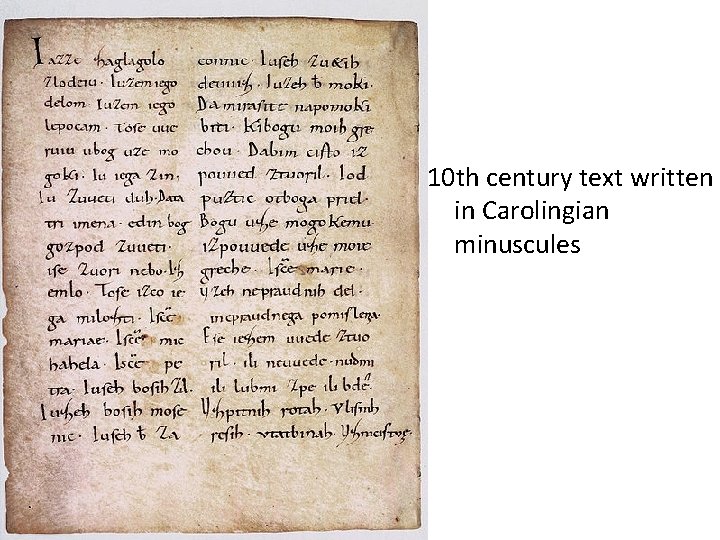 Iazze zaglagolo
zlodeiu. Iuzem iego
delom. Iuzem iego
lepocam. Tose uue
ruiu ubog uze mo
goki. Iu iega zin.
Iu zuueti duh. Data
tri imena. edin bog
gozpod zuueti.
ise zuori nebo. Isz
emlo. Tose izco ie
ga milozti. Iscē
mariae. Iscē mic
hahela. Iscē pe
tra. Iuseh bosih zil.
Iuzeh bosih mose
nic. Iuseh b za
connic. Iuseh zuetih
deuuiz. Iuzeh b moki.
Da mirasite napomoki
biti. Kibogu moih gre
chou. Dabim cisto iz
pouued ztuoril. Iod
puztic otboga priel.
Bogu uze mogokemu
izpouuede uze moie
greche. Iscē marie.
uzeh nepraudnih del.
inepraudnega pomislena.
Ese iezem uuede ztuo
ril. ili neuuede. nudmi
ili lubmi zpe ili bdē
Uzpitnih rotah. Vlisnih
resih. Vtatbinah. Uzmcistue.
10th century text written
in Carolingian
minuscules